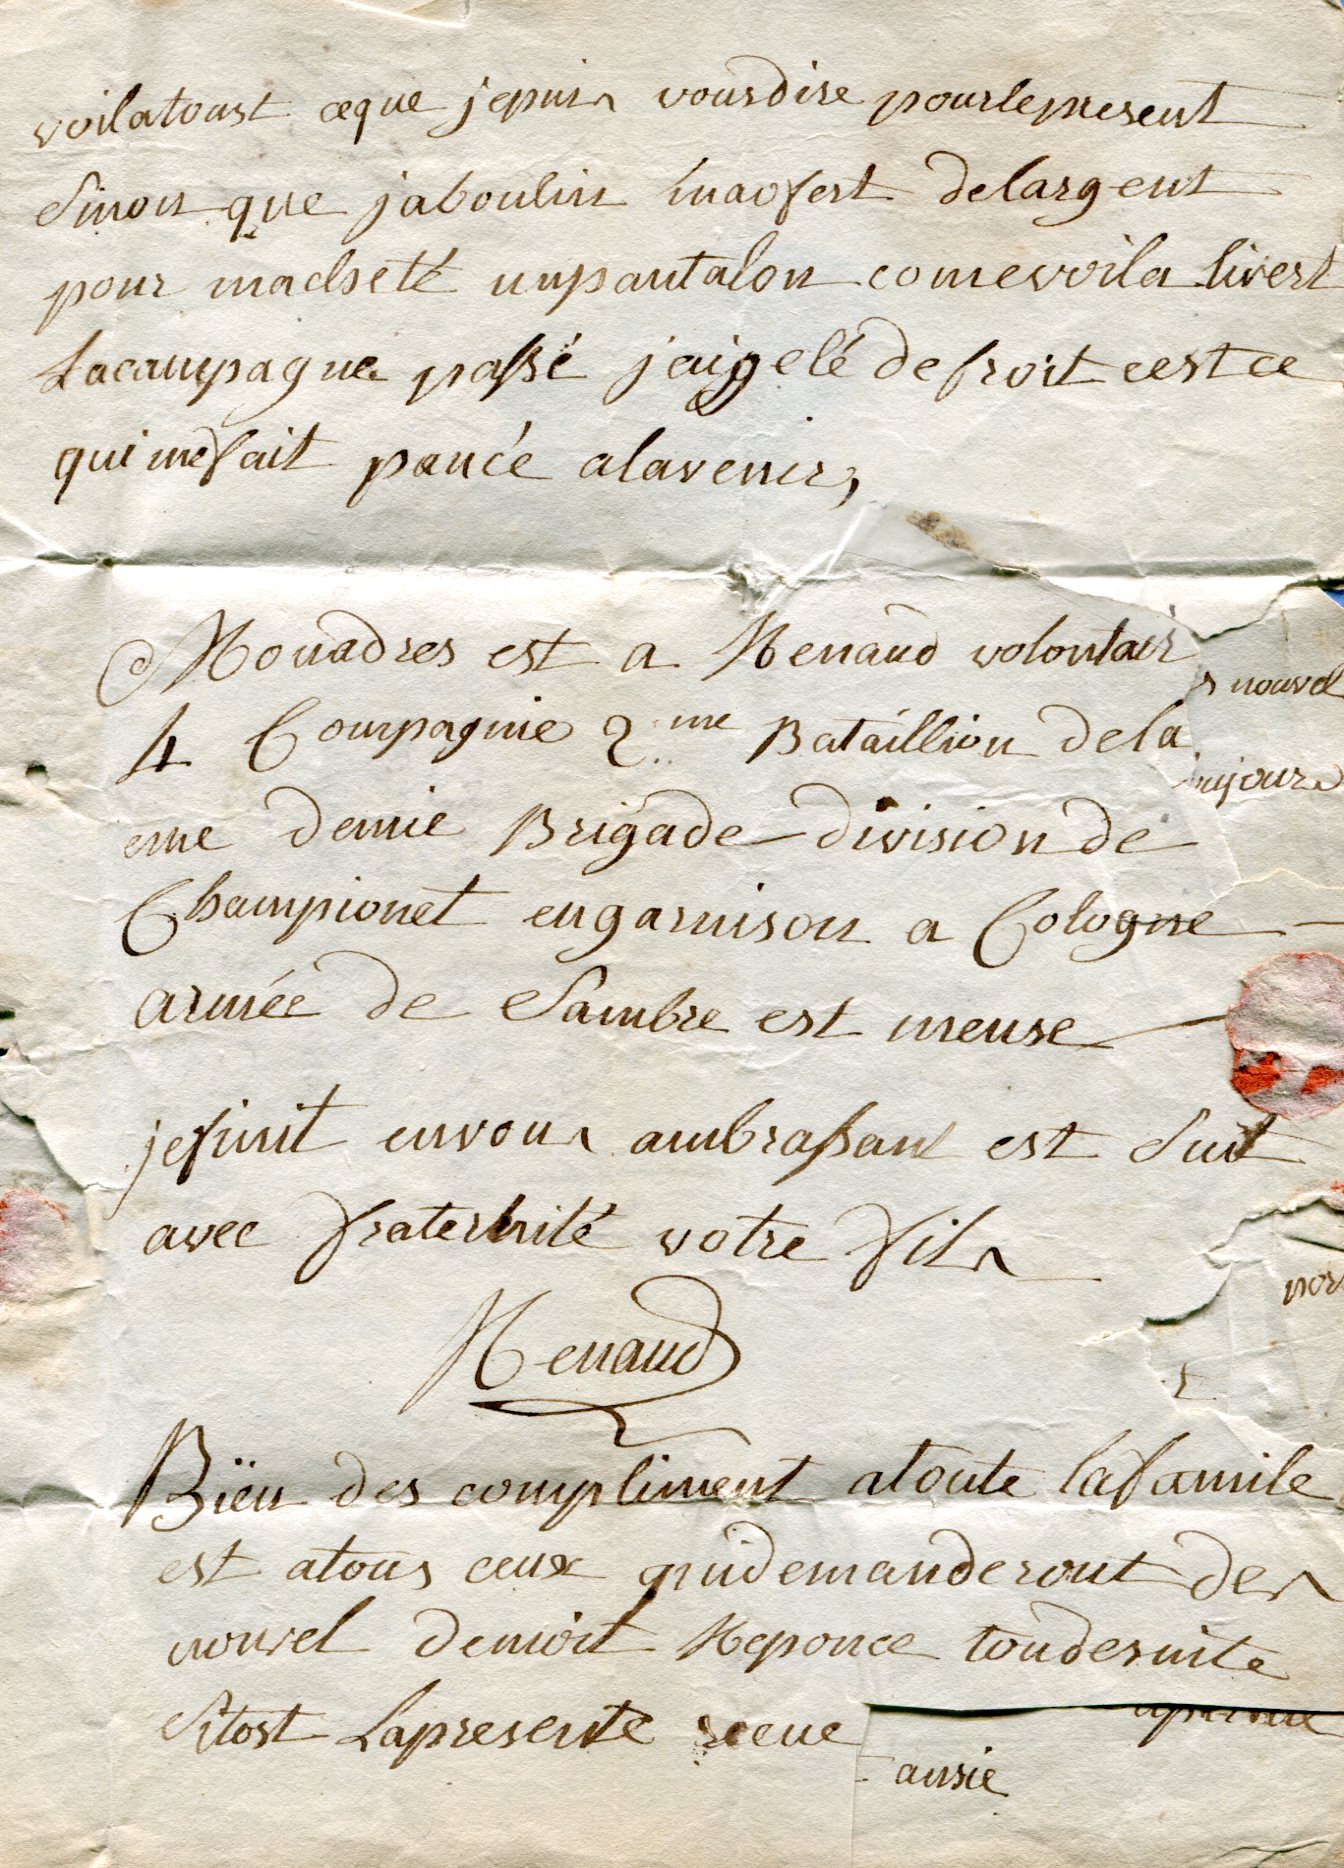 voilatoust ceque jepuis vousdire pourlepresent
Sinon que jaboulin maofert delargent
pour macheté unpantalon comevoila livert
Lacampagne passé jaigelé defroit cestce
quimefait pancé alavenir,
Monadres est a Renaud volontair
s nouvel
4 Compagnie 2me Bataillion dela
oujours
eme demie Brigade division de
Championet engarnison a Cologne
armée de Sambre est meuse
jefinit envous ambrassant est Suit
avec fraternité votre fils
Renaud
Biën des compliment atoute lafamile
est atous ceux quidemanderont des
nouvel demoit Reponce toudesuite
Sitost Lapresente receue
aussie